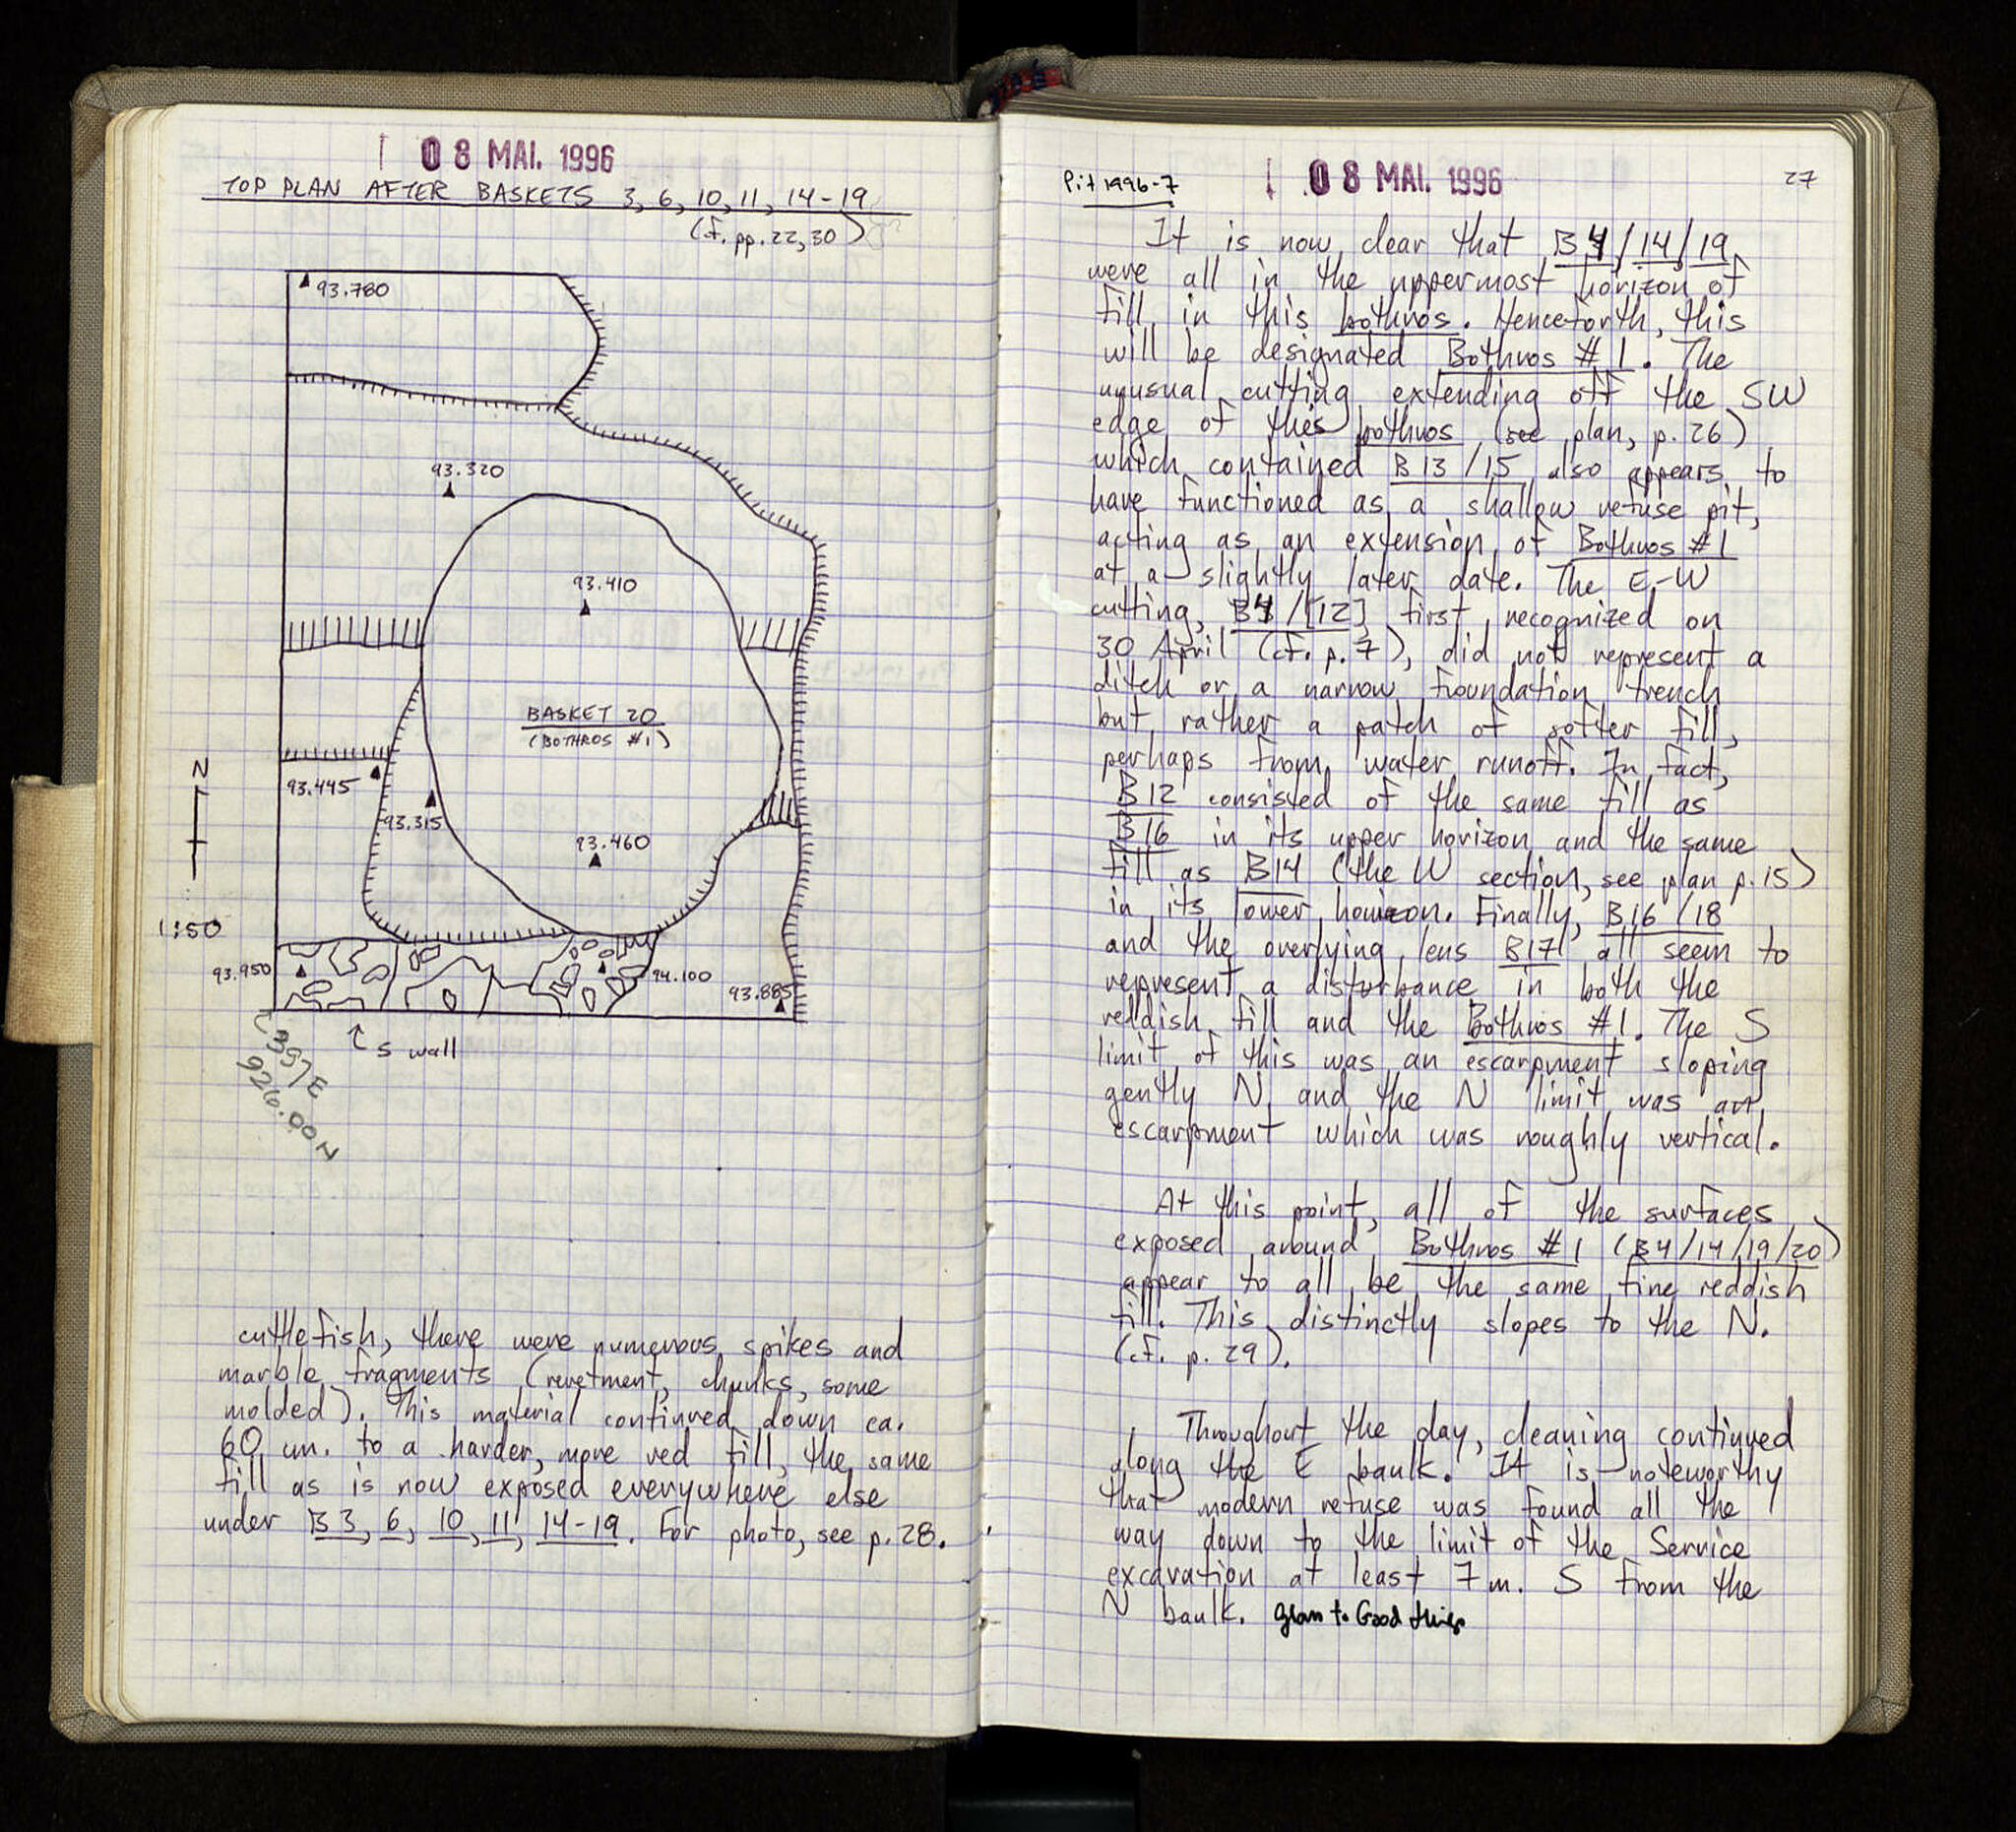 08 MAI. 1996
TOP PLAN AFTER BASKETS 3, 6, 10, 11, 14-19
(cf. pp. 22, 30)
93.780
93.320
93.410
BASKET 20
(BOTHROS #1)
N
93.445
93.315
93.460
1:50
93.950
94.100
93.885
S wall
397E
926.00N
cuttlefish, there were numerous spikes and
marble fragments (revetment, chunks, some
molded). This material continued down ca.
60 cm. to a harder, more red fill, the same
fill as is now exposed everywhere else
under B3, 6, 10, 11, 14-19. For photo, see p. 28.
Pit 1996-7
08 MAI. 1996
27
It is now clear that B4/14/19
were all in the uppermost horizon of
fill in this bothros. Henceforth, this
will be designated Bothros #1. The
unusual cutting extending off the SW
edge of this bothros (see plan, p. 26)
which contained B13/15 also appears to
have functioned as a shallow refuse pit,
acting as an extension of Bothros #1
at a slightly later date. The E-W
cutting, B4/[12] first recognized on
30 April (cf. p. 7), did not represent a
ditch or a narrow foundation trench
but rather a patch of softer fill,
perhaps from water runoff. In fact,
B12 consisted of the same fill as
B16 in its upper horizon and the same
fill as B14 (the W section, see plan p. 15)
in its lower horizon. Finally, B16/18
and the overlying lens B17 all seem to
represent a disturbance in both the
reddish fill and the Bothros #1. The S
limit of this was an escarpment sloping
gently N, and the N limit was an
escarpment which was roughly vertical.
At this point, all of the surfaces
exposed around Bothros #1 (B4/14/19/20)
appear to all be the same fine reddish
fill. This distinctly slopes to the N.
(cf. p. 29).
Throughout the day, cleaning continued
along the E baulk. It is noteworthy
that modern refuse was found all the
way down to the limit of the Service
excavation at least 7 m. S from the
N baulk. to Good things